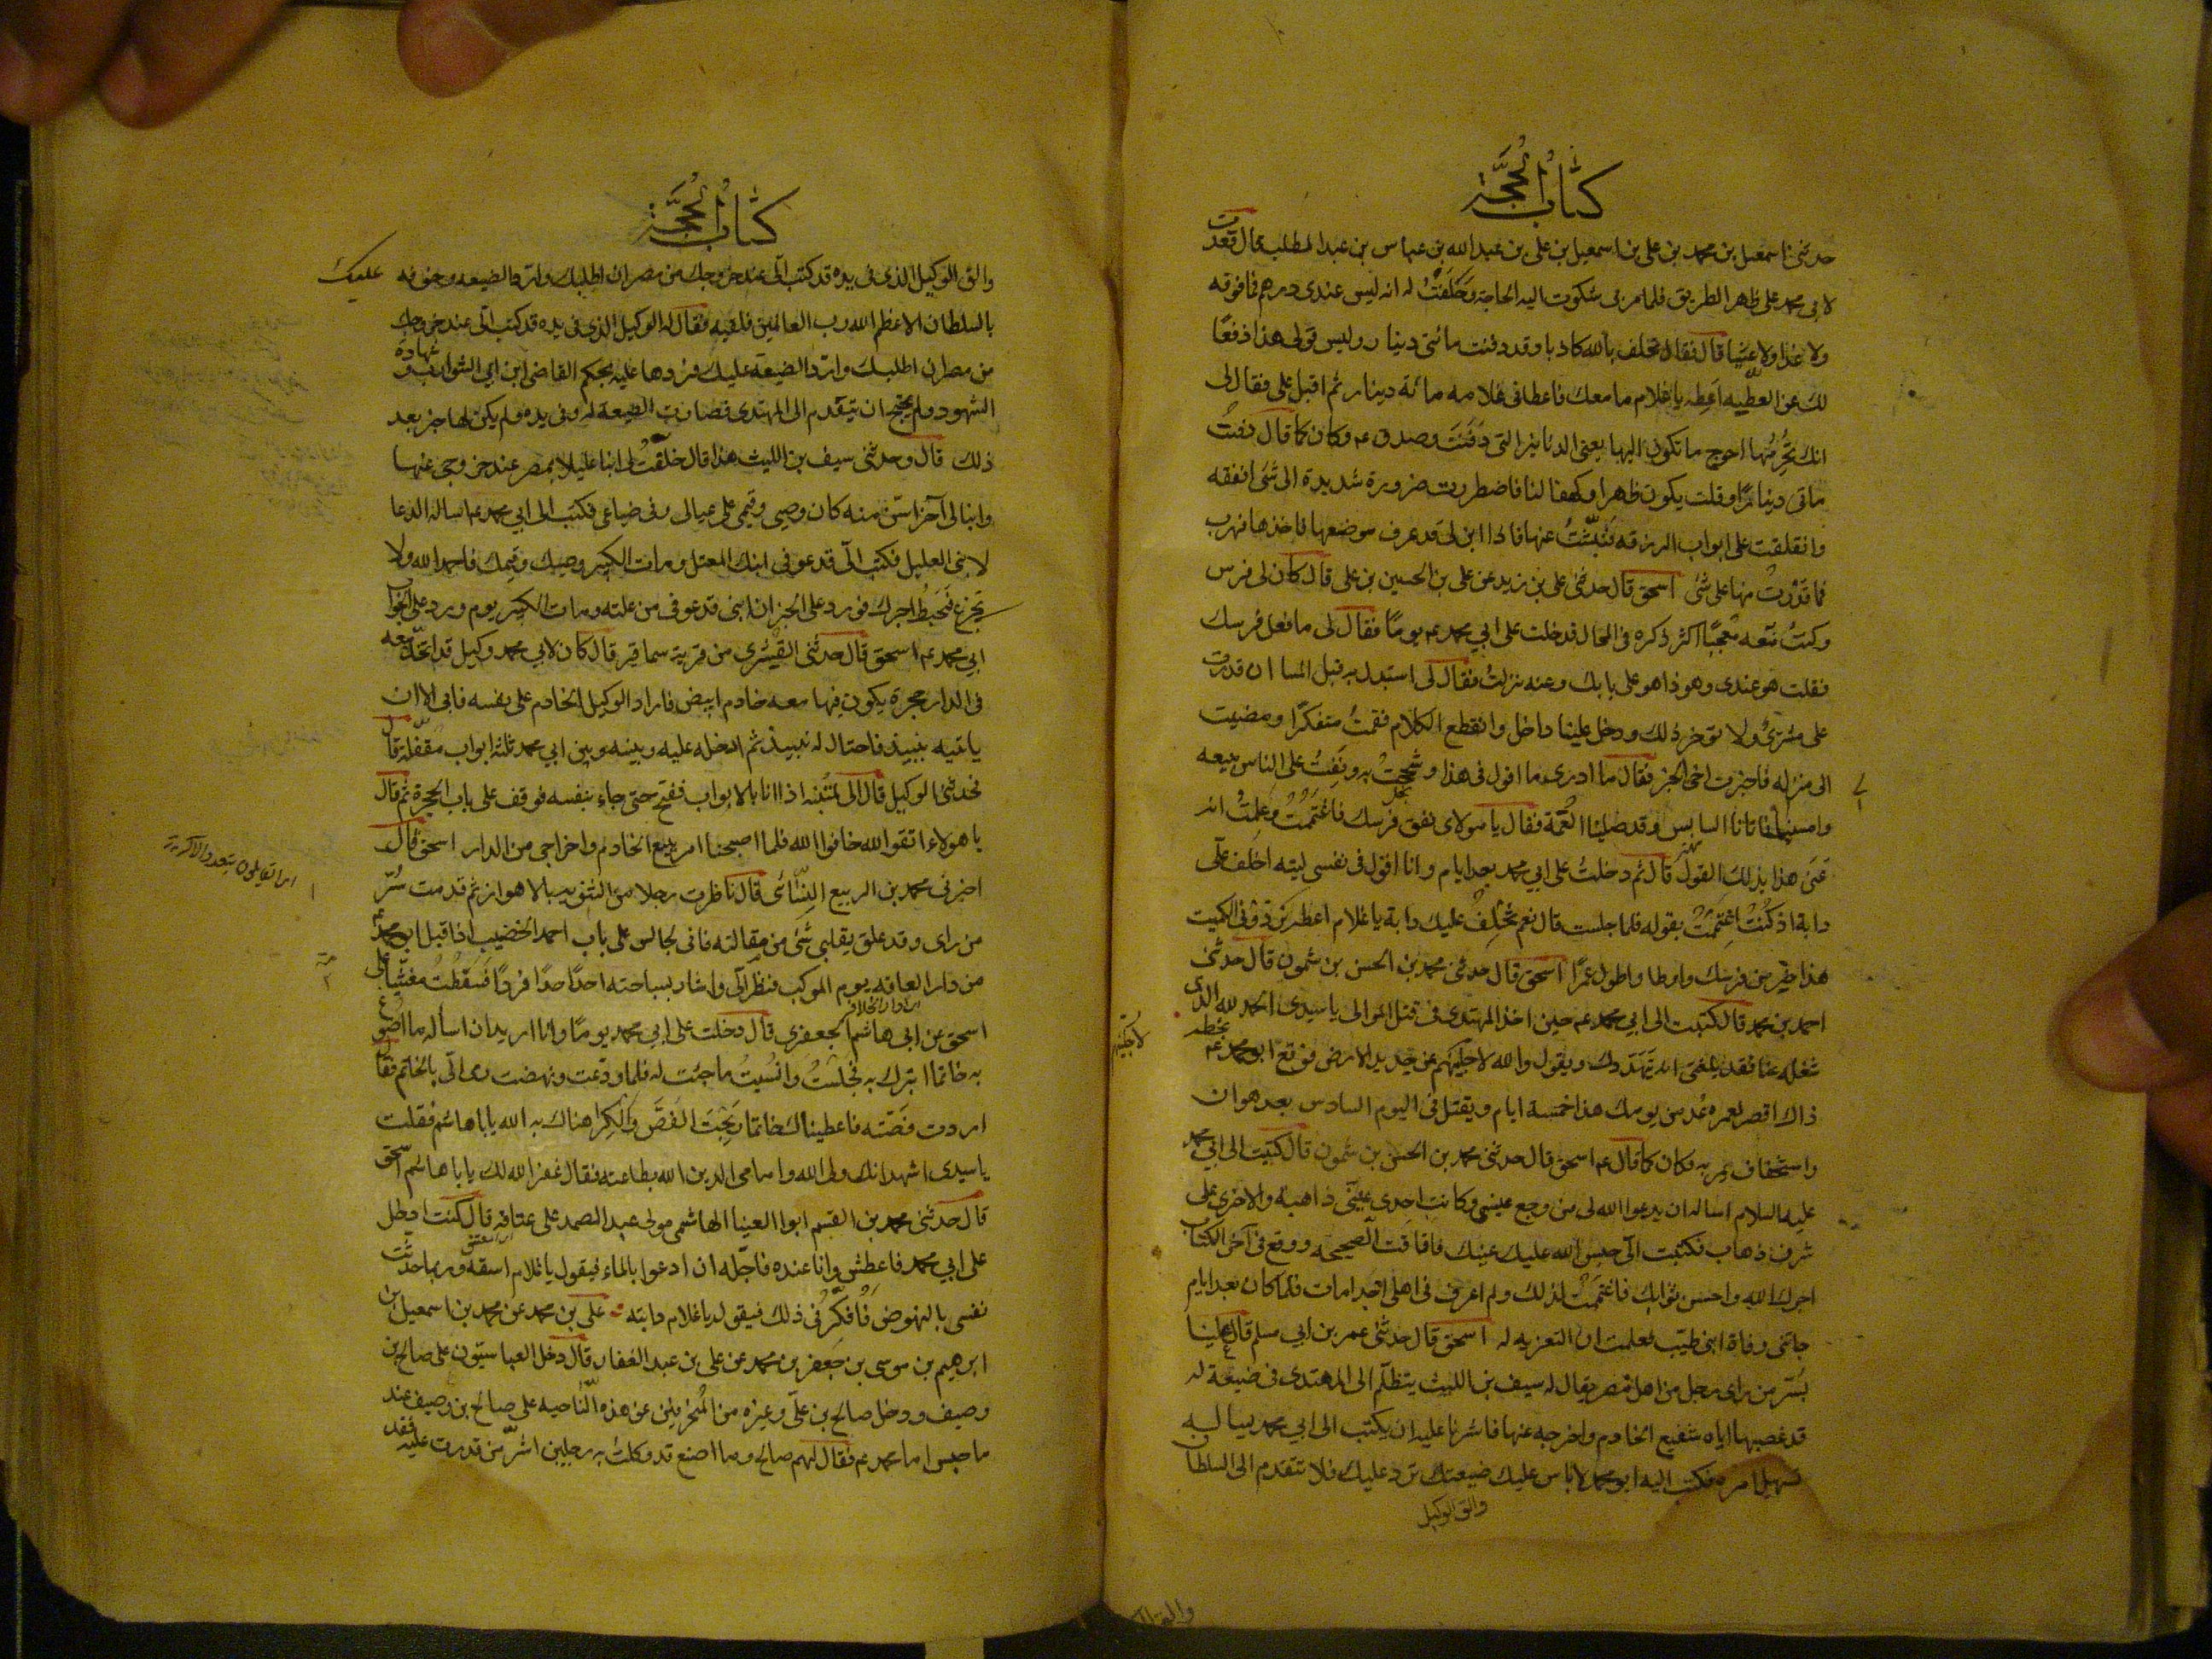 كتاب الحجة
حدثنى اسمعيل بن محمد بن على بن اسمعيل بن على بن عبد الله بن عباس بن عبد المطلب قال قعدت
لابى محمد على ظهر الطريق فلما مر بى شكوت اليه الحاجة وحلفت له انه ليس عندى درهم فما فوقه
ولا غداء ولا عشيا قال فقال تحلف بالله كاذبا وقد دفنت مائتى دينار وليس قولى هذا دفعا
لك عن العطيه اعطه يا غلام ما معك فاعطانى غلامه مائة دينار ثم اقبل على فقال لى
انك تحرمها احوج ما تكون اليها يعنى الدنانير التى دفنت وصدق ع وكان كما قال دفنت
مائتى دينار وقلت يكون ظهرا وكهفا لنا فاضطررت ضرورة شديدة الى شئ انفقه
وانغلقت على ابواب الرزق فنبشت عنها فاذا ابن لى قد عرف موضعها فاخذها فهرب
فما قدرت منها على شئ اسحق قال حدثنى على بن زيد عن على بن الحسين بن على قال كان لى فرس
وكنت به معجبا اكثر ذكره فى المحال فدخلت على ابي محمد ع يوما فقال لى ما فعل فرسك
فقلت هو عندى وهو ذا هو على بابك وعنه نزلت فقال لى استبدل به قبل المسا ان قدرت
على مشترى ولا توخر ذلك ودخل علينا داخل وانقطع الكلام فقمت متفكرا ومضيت
الى منزلى فاخبرت اخى الخبر فقال ما ادرى ما اقول فى هذا وشححت به ونفست على الناس ببيعه
وامسينا فاتانا السايس وقد صلينا العتمة فقال يا مولاى نفق فرسك فاغتممت وعلمت انه
عنى هذا بذلك القول قال ثم دخلت على ابي محمد بعد ايام وانا اقول فى نفسى ليته اخلف على
دابة اذ كنت اغتممت بقوله فلما جلست قال نعم نخلف عليك دابة يا غلام اعطه برذونى الكميت
هذا خير من فرسك واوطا واطول عمرا اسحق قال حدثنى محمد بن الحسن بن شمون قال حدثنى
احمد بن محمد قال كتبت الى ابي محمد ع حين اخذ المهتدى فى قتل الموالى يا سيدى الحمد لله الذى
شغله عنا فقد بلغنى انه يتهددك ويقول والله لاجلينهم عن جديد الارض فوقع ابو محمد ع بخطه
ذاك اقصر لعمره عد من يومك هذا خمسة ايام ويقتل فى اليوم السادس بعد هوان
واستخفاف يمر به فكان كما قال ع اسحق قال حدثنى محمد بن الحسن بن شمون قال كتبت الى ابي محمد
عليه السلام اساله ان يدعوا الله لى من وجع عينى وكانت احدى عينى ذاهبة والاخرى على
شرف ذهاب فكتب الى حبس الله عليك عينك فافاقت الصحيحه ووقع فى آخر الكتاب
اجرك الله واحسن ثوابك فاغتممت لذلك ولم اعرف فى اهلى احدا مات فلما كان بعد ايام
جاءتنى وفاة ابنى طيب فعلمت ان التعزيه له اسحق قال حدثنى عمر بن ابي مسلم قال قدم علينا
بسر من راى رجل من اهل مصر يقال له سيف بن الليث يتظلم الى المهتدى فى ضيعة له
قد غصبها اياه شفيع الخادم واخرجه عنها فاشرنا عليه ان يكتب الى ابي محمد يساله
تسهيل امره فكتب اليه ابو محمد لا باس عليك ضيعتك ترد عليك فلا تتقدم الى السلطان
والق الوكيل
لاجلينهم
كتاب الحجة
والق الوكيل الذى فى يده قد كتب الى عند خروجك من مصر ان اطلبك وارد الضيعه وخوفه
عليك
بالسلطان الاعظم الله رب العالمين فلقيه فقال له الوكيل الذى فى يده قد كتب الى عند خروجك
من مصر ان اطلبك وارد الضيعه عليك فردها عليه بحكم القاضى ابن ابي الشوارب وشهادة
الشهود ولم يحتج ان يتقدم الى المهتدى فصارت الضيعة له وفى يده ولم يكن لها خبر بعد
ذلك قال وحدثنى سيف بن الليث هذا قال خلفت ابنا لى عليلا بمصر عند خروجى عنها
وابنا لى آخر اسن منه كان وصيى وقيمى على عيالى وفى ضياعى فكتبت الى ابي محمد ع اساله الدعا
لابنى العليل فكتب الى قد عوفى ابنك المعتل ومات الكبير وصيك وقيمك فاحمد الله ولا
تجزع فيحبط اجرك فورد على الخبر ان ابنى قد عوفى من علته ومات الكبير يوم ورد على جواب
ابي محمد ع اسحق قال حدثنى القيشرى من قرية سماقير قال كان لابي محمد وكيل قد اتخذ معه
فى الدار حجرة يكون فيها معه خادم ابيض فاراد الوكيل الخادم على نفسه فابى الا ان
ياتيه بنبيذ فاحتال له نبيذ ثم ادخله عليه وبينه وبين ابي محمد ثلثة ابواب مقفلة قال
فحدثنى الوكيل قال انى لمنتبه اذ انا بالابواب تفتح حتى جاء بنفسه فوقف على باب الحجرة ثم قال
يا هولاء اتقوا الله خافوا الله فلما اصبحنا امر ببيع الخادم واخراجى من الدار اسحق قال
اخبرنى محمد بن الربيع النسائى قال ناظرت رجلا من الثنويه بالاهواز ثم قدمت سر
من راى وقد علق بقلبى شئ من مقالته فانى لجالس على باب احمد الخضيب اذ اقبل ابو محمد
من دار العامه يوم الموكب فنظر الى واشار بسباحته احدا احدا فردا فسقطت مغشيا على
اسحق عن ابي هاشم الجعفرى قال دخلت على ابي محمد يوما وانا اريد ان اسأله ما اصوغ
به خاتما اتبرك به فجلست وانسيت ما جئت له فلما ودعت ونهضت رمى الى بالخاتم فقال
اردت فضة فاعطيناك خاتما ربحت الفص والكرا هناك به الله يابا هاشم فقلت
يا سيدى اشهد انك ولى الله وامامى الذى ادين الله بطاعته فقال غفر الله لك يابا هاشم اسحق
قال حدثنى محمد بن القسم ابوا العينا الهاشمى مولى عبد الصمد على عتاقه قال كنت ادخل
على ابي محمد فاعطش وانا عنده فاجله ان ادعوا بالماء فيقول يا غلام اسقه وربما حدثت
نفسى بالنهوض فافكر فى ذلك فيقول يا غلام دابته على بن محمد عن محمد بن اسمعيل بن
ابرهيم بن موسى بن جعفر بن محمد عن على بن عبد الغفار قال دخل العباسيون على صالح بن
وصيف ودخل صالح بن على وغيره من المنحرفين عن هذه الناحيه على صالح بن وصيف عند
ما حبس ابا محمد ع فقال لهم صالح وما اصنع قد وكلت به رجلين اشر من قدرت عليه فقد